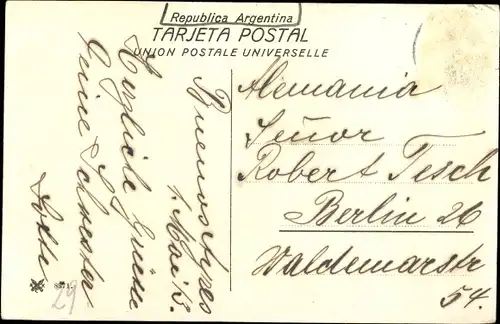 Republica Argentina
TARJETA POSTAL
UNION POSTALE UNIVERSELLE
Buenos Ayres
1. Mai 13.
Herzliche Grüsse
Deine Schwester
Lotte
Alemania
Señor
Robert Tesch
Berlin 26
Waldemarstr
54.
29